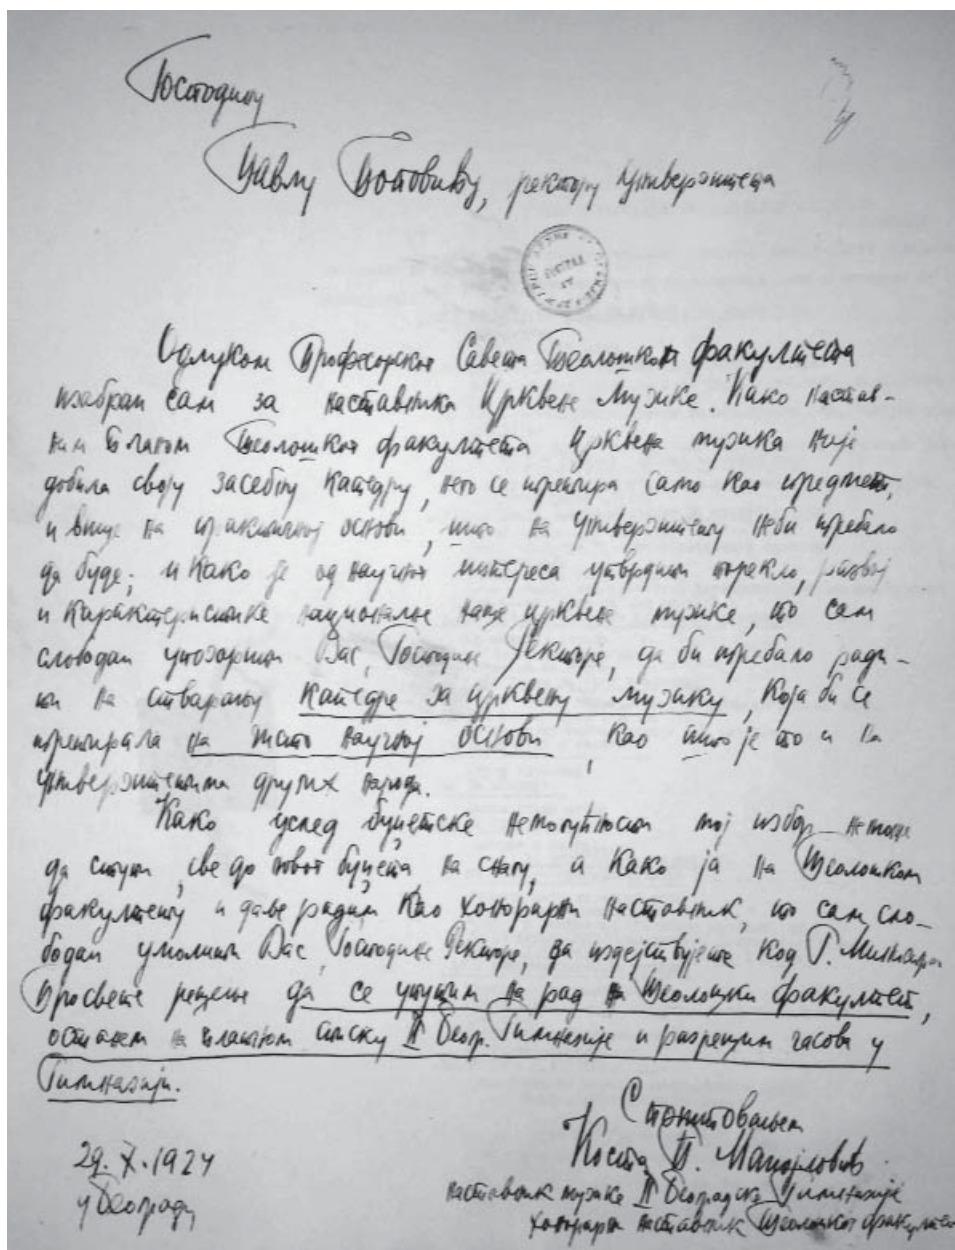 Господину
Павлу Поповићу, ректору Универзитета
Одлуком Професорског Савета Теолошког факултета
изабран сам за наставника Црквене Музике. Како Настав-
ним Планом Теолошког факултета Црквена музика није
добила своју засебну Катедру, него се третира само као предмет,
и више на практичној основи, што на Универзитету неби требало
да буде; и Како је од научног интереса утврдити порекло, развој
и Карактеристике националне наше црквене музике, то сам
слободан упозорити Вас, Господине Ректоре, да би требало ради-
ти на стварању Катедре за црквену музику, Која би се
третирала на чисто научној основи, као што је то и на
универзитетима других народа.
Како услед буџетске немогућности мој избор неможе
да ступи, све до новог буџета на снагу, а Како ја на Теолошком
факултету и даље радим Као хонорарни наставник, то сам сло-
бодан умолити Вас, Господине Ректоре, да издејствујете Код Г. Министра
Просвете решење да се упутим на рад на Теолошки факултет,
останем на платном списку II Беогр. Гимназије и разрешим часова у
Гимназији.
С поштовањем
Коста П. Манојловић
наставник музике II Београдске Гимназије
хонорарни наставник Теолошког факултета
29. X. 1924
у Београду